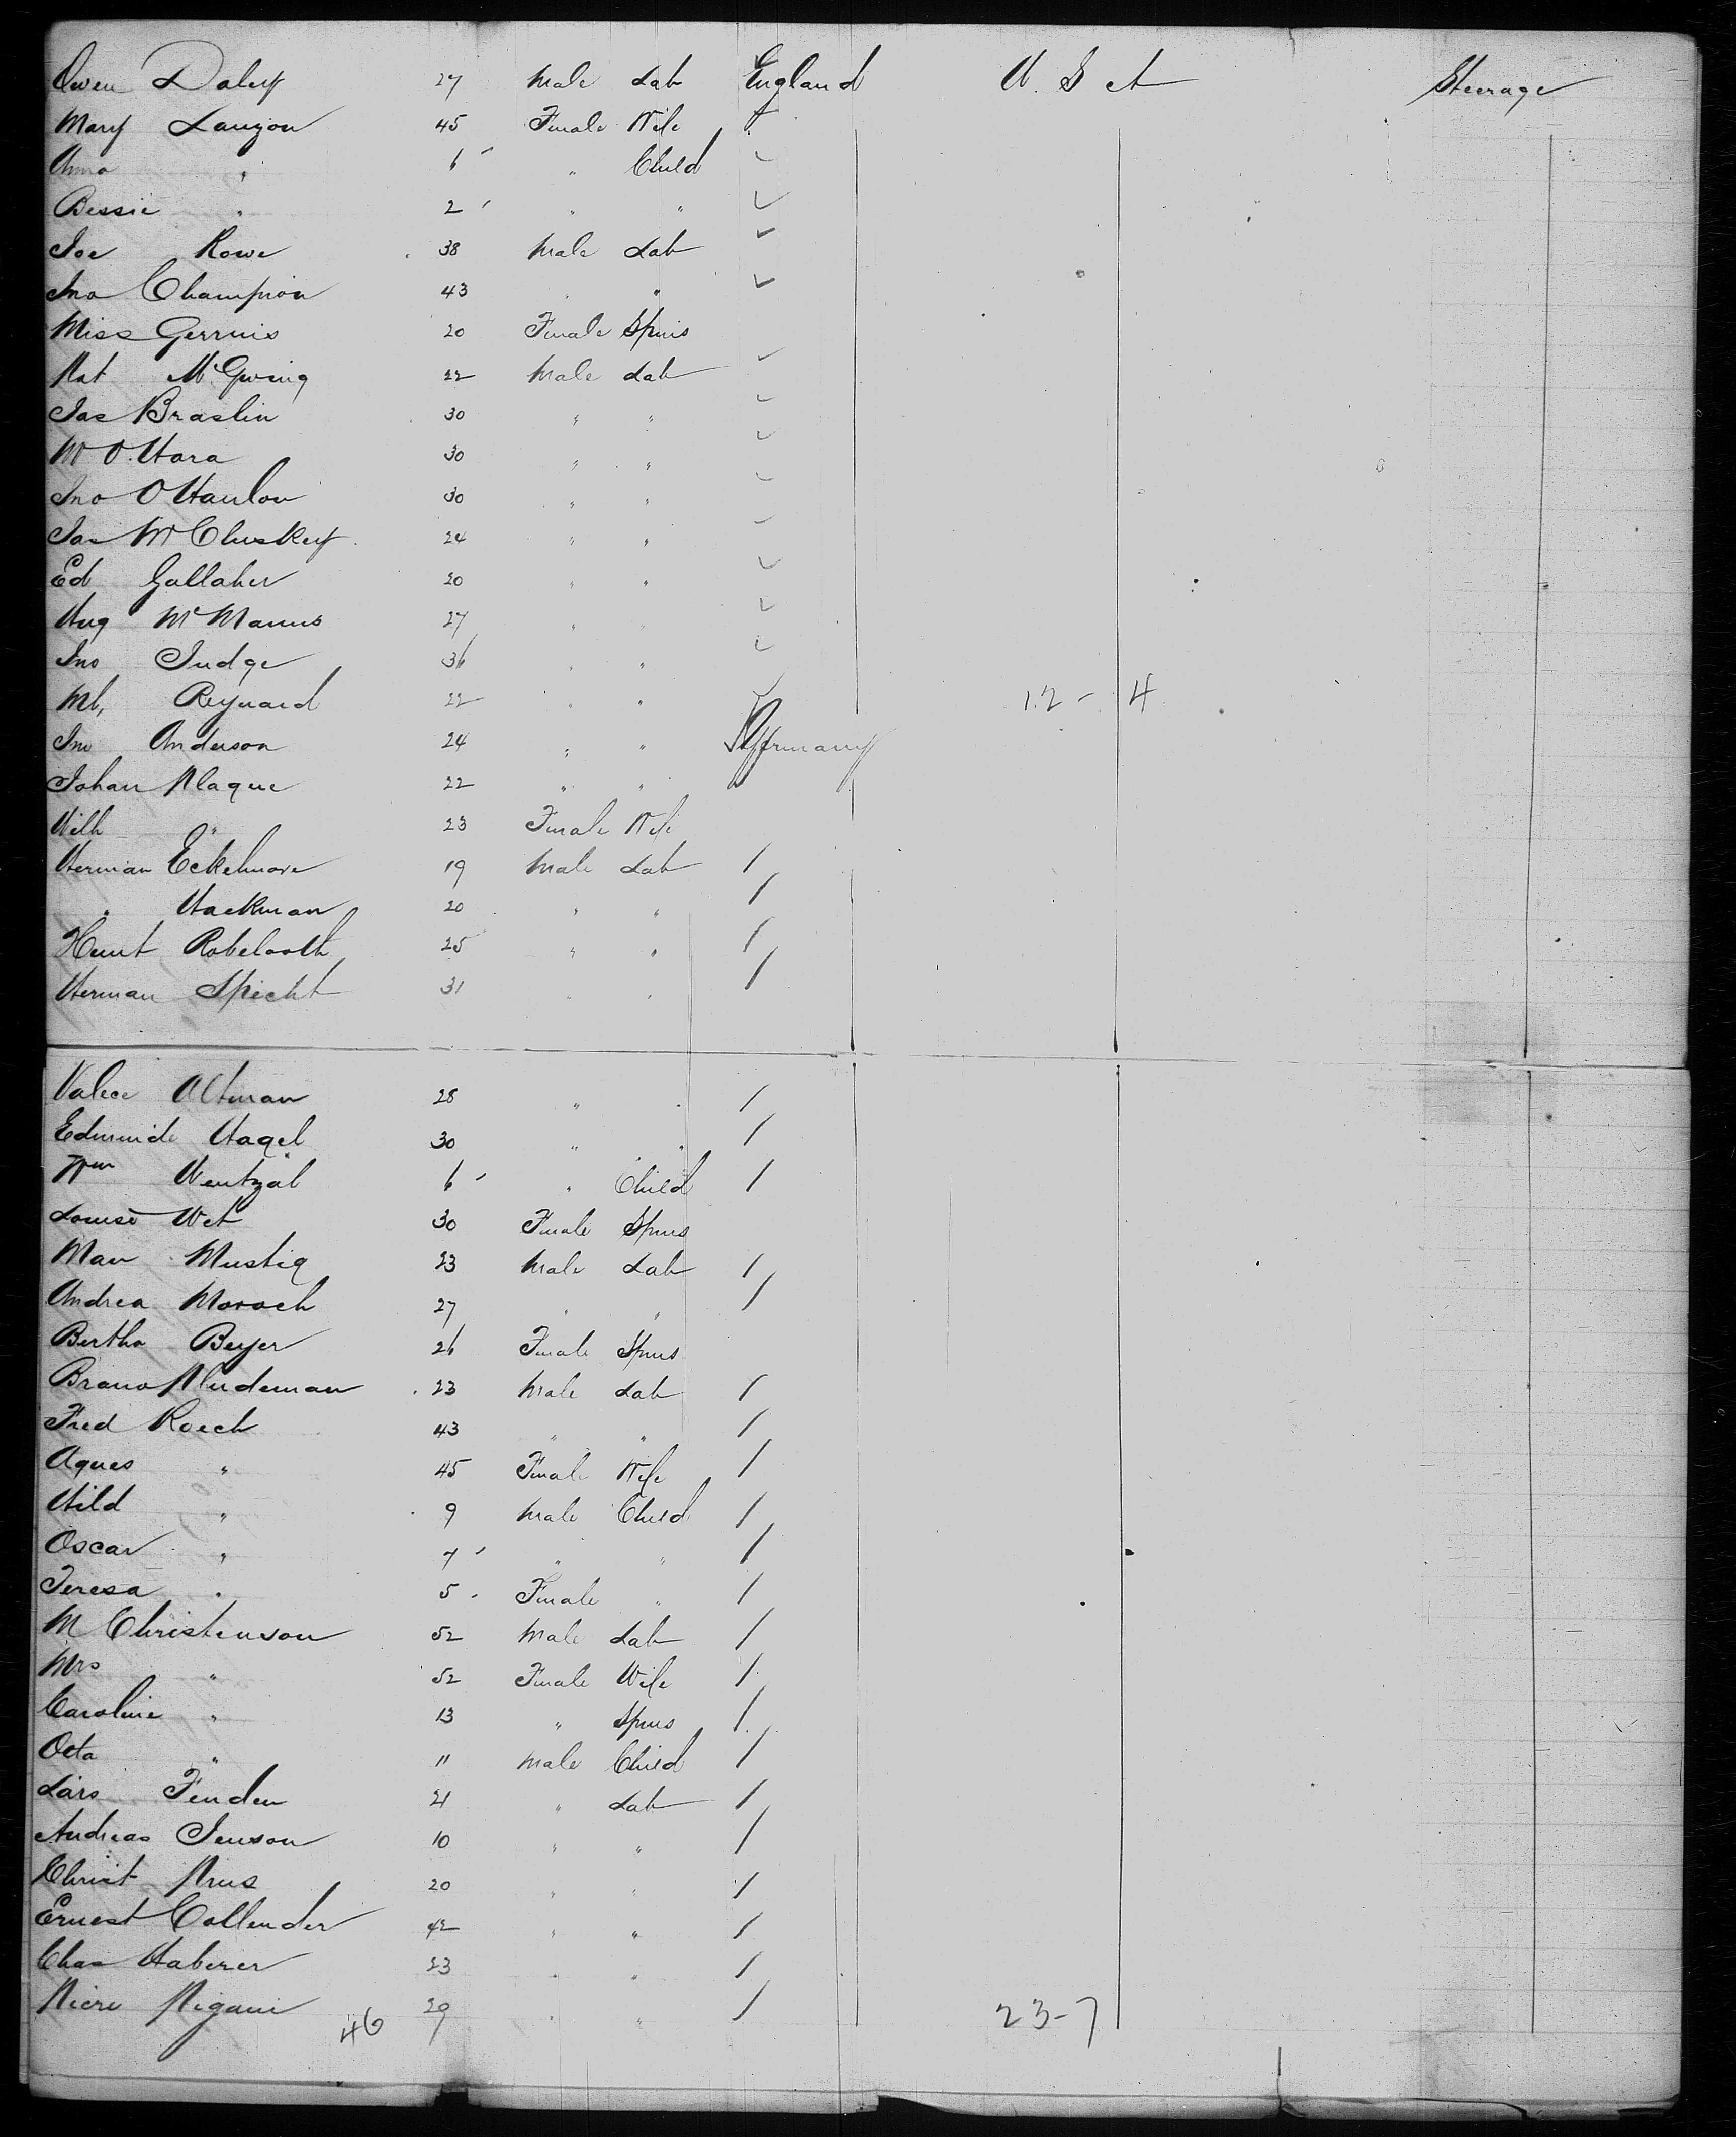 Owen Daley 27 Male Lab England U.S.A Steerage
Mary Lanyon 45 Female Wife
Anna " 6 " Child
Bessie " 2 " "
Joe Rowe 38 Male Lab
Jno Champion 43 " "
Miss Gerrins 20 Female Spins
Pat 22 Male Lab
Jas Braslin 30 " "
M O.Hara 30 " "
Jno OHanlon 30 " "
Jas McCluskey 24 " "
Ed Gallaher 20 " "
Hug McManus 27 " "
Jno Judge 36 " "
Ml, Reynard 22 " " 12 - 4
Jno Anderson 24 " " Germany
Johan Plaque 22 " "
Wilh " 23 Female Wife
Herman 19 Male Lab
" Hackman 20 " "
25 " "
Herman Specht 31 " "
Altman 28 " "
Hagel 30 " "
Wm Wentzal 6 " Child
Louise Wet 30 Female Spins
Max Mustig 23 Male Lab
Andrea Morach 27 " "
Bertha Beyer 26 Female Spins
Bruno 23 Male Lab
Fred Roech 43 " "
Agnes " 45 Female Wife
Hild " 9 Male Child
Oscar " 7 " "
Teresa " 5 Female "
M Christenson 52 Male Lab
Mrs " 52 Female Wife
Caroline " 13 " Spins
Octa " 11 Male Child
Lars Finden 21 " Lab
Andreas Jenson 10 " "
Christ 20 " "
Ernest Collender 42 " "
Chas Haberer 23 " "
29 " " 23-7
46